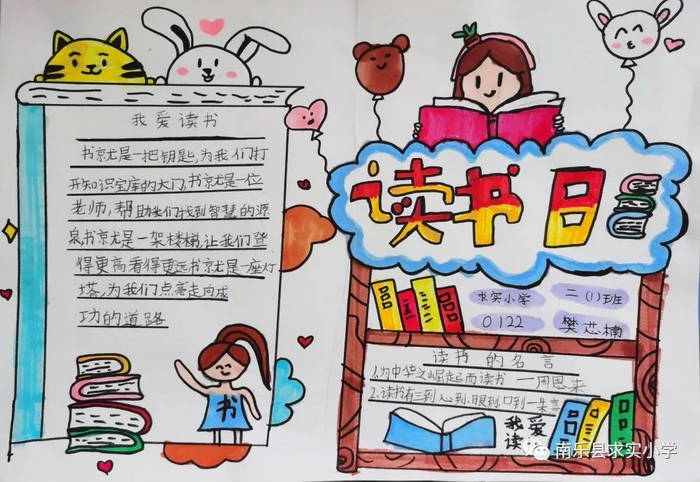 我爱读书
书就是一把钥匙,为我们打
开知识宝库的大门,书就是一位
老师,帮助我们找到智慧的源
泉书就是一架楼梯,让我们登
得更高看得更远书就是一座灯
塔,为我们点亮走向成
功的道路
书
读书日
求实小学
二(1)班
0122
樊芯楠
读书的名言
1.为中华之崛起而读书一周恩来
2.读书有三到心到,眼到,口到一朱熹
我爱
读书
南乐县求实小学